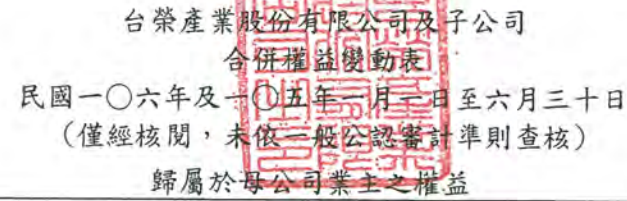 台榮產業股份有限公司及子公司
合併權益變動表
民國一〇六年及一〇五年一月一日至六月三十日
(僅經核閱，未依一般公認審計準則查核)
歸屬於母公司業主之權益